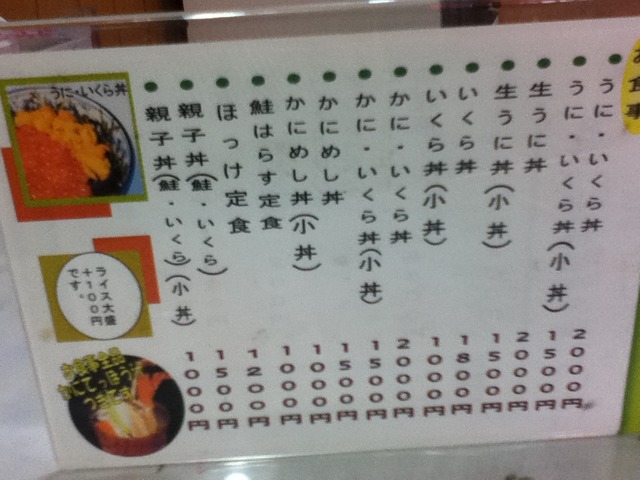 お食事
うに・いくら丼 2000円
うに・いくら丼(小丼) 1500円
生うに丼 2000円
生うに丼(小丼) 1500円
いくら丼 1800円
いくら丼(小丼) 1000円
かに・いくら丼 2000円
かに・いくら丼(小丼) 1500円
かにめし丼 1500円
かにめし丼(小丼) 1000円
鮭はらす定食 1000円
ほっけ定食 1200円
親子丼(鮭・いくら) 1500円
親子丼(鮭・いくら)(小丼) 1000円
うに・いくら丼
ライス大盛
+100円
です。
かにてっぽう